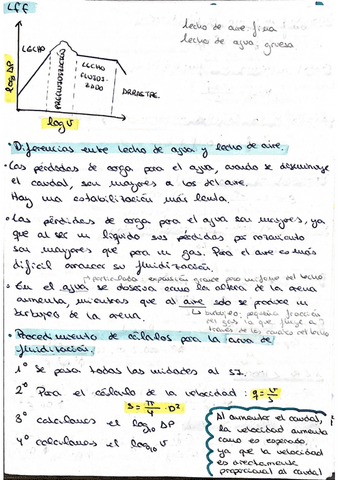 LFF
lecho de aire fina
lecho de agua, gruesa
log ΔP
LECHO
PREFLUIDIZACIÓN
LECHO
FLUIDI-
ZADO
ARRASTRE.
log V
• Diferencias entre lecho de agua y lecho de aire.
• Las pérdidas de carga para el agua, cuando se disminuye
el caudal, son mayores a las del aire.
Hay una estabilización más lenta.
• Las pérdidas de carga para el agua son mayores, ya
que al ser un líquido sus pérdidas por rozamiento
son mayores que para un gas. Para el aire es más
difícil arrancar su fluidización.
particulada: expansión grande pero uniforme del lecho
• En el agua se observa como la altura de la arena
aumenta, mientras que al aire solo se produce un
burbujeo de la arena.
↳ burbujeo: pequeña fracción
del gas la que fluye a
través de los canales del lecho
• Procedimiento de cálculos para la curva de
fluidización.
1º Se pasa todas las unidades al SI.
2º Para el cálculo de la velocidad: q = V/S
S = π/4 · D²
3º calculamos el log₁₀ ΔP
4º calculamos el log₁₀ V
Al aumentar el caudal,
la velocidad aumenta
como es esperado,
ya que la velocidad
es directamente
proporcional al caudal